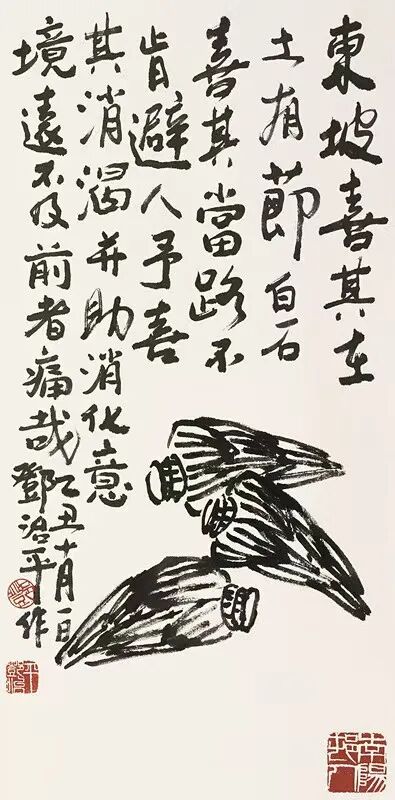 東坡喜其在
土有節白石
喜其當路不
肯避人予喜
其消渴并助消化意
境遠不及前者痛哉
丑十月一日
鄧治平作